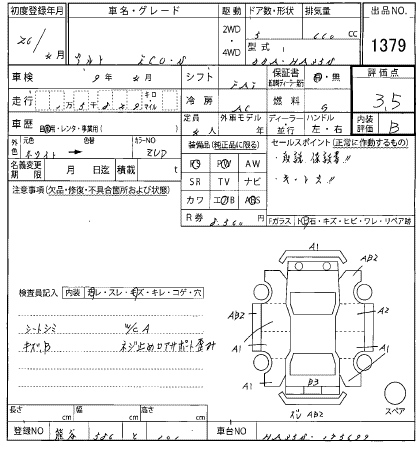 初度登録年月 車名・グレード 駆動 ドア数・形状 排気量 出品NO.
26/ 年 月 アルト ECO-S 2WD ・ 4WD 5 660 cc 1379
型式 DBA-HA35S
車検 9年 月 シフト FAT 保証書 有・無 評価点
走行 キロ マイル 冷房 AC 燃料 G 3.5
車歴 自家用・レンタ・事業用( ) 定員 名 外車モデル 年 ディーラー ・ 並行 ハンドル 左・右 内装評価 B
外色 元色 ホワイト 色替 カラーNO ZUD
名義変更期限 月 日迄 積載 t
装備品(純正品に限る)
PS PW AW
SR TV ナビ
カワ エアB ABS
R券 8,360 円
セールスポイント(正常に作動するもの)
・取説 保証書!!
・キレイ!!
Fガラス トビ石・キズ・ヒビ・ワレ・リペア跡
注意事項(欠品・修復・不具合箇所および状態)
検査員記入 内装 ヨゴレ・スレ・キズ・キレ・コゲ・穴
シートシミ W/C A
キズB ネジ止めロアサポート歪み
A1
AB2
AB2
A2
A1
A1
A1
A1
B3
AB2
スペア
長さ cm 幅 cm 高さ cm
登録NO 熊谷 586 と 車台NO HA35S-